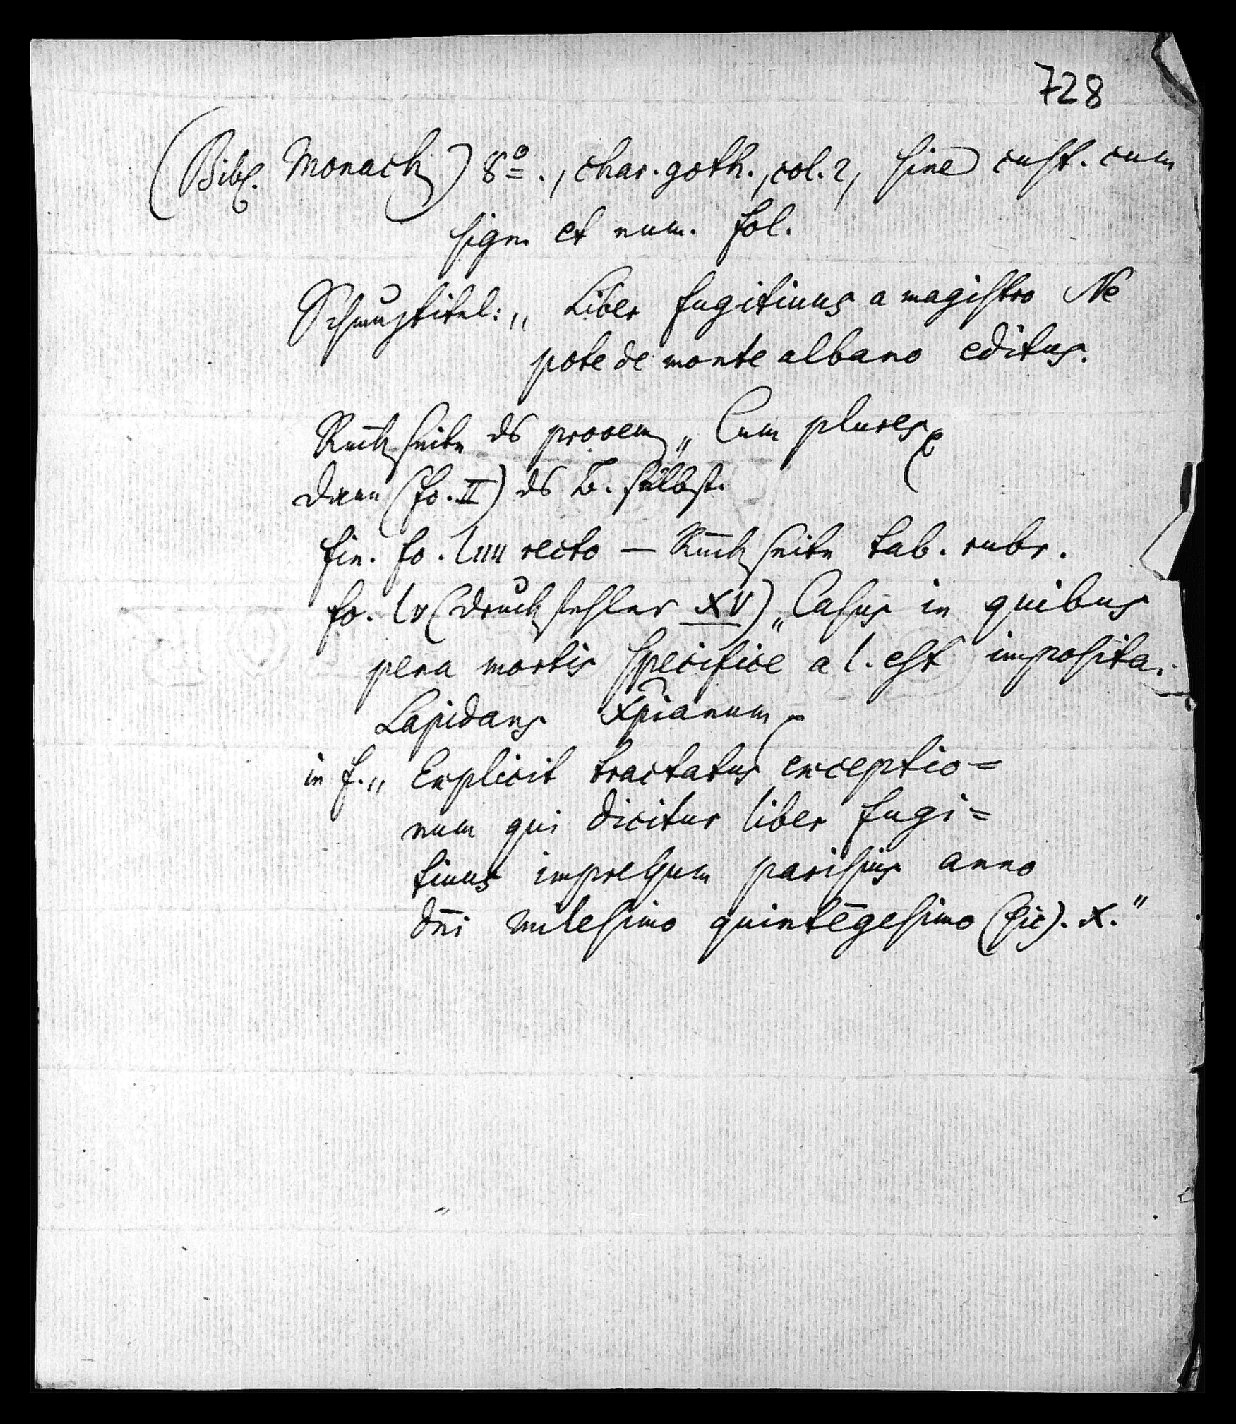 728
(Bibl. Monach) 8º., char. goth., col. 2, sine cust. cum
sign et num. fol.
Schmutztitel: „ Liber fugitiuus a magistro Ne
pote de monte albano editus.
Rückseite ds prooem „ Cum plures
dann (fo. II) ds B. selbst.
fin. fo. liiii recto — Rückseite tab. rubr.
fo. lv (Druckfehler XV) „ Casus in quibus
pena mortis specifice a l. est imposita.
Lapidans Xpianum
in f. „ Explicit tractatus exceptio=
num qui dicitur liber fugi=
tiuus impressum parisius anno
dn̄i milesimo quintēgesimo (sic). X."